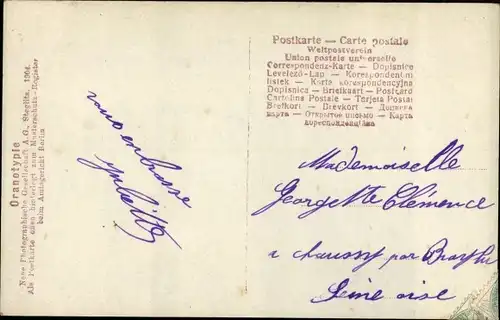 Oranotypie
Neue Photographische Gesellschaft A.G., Steglitz, 1904.
Als Postkarte eben hinterlegt zum Musterschutz-Register
beim Amtsgericht Berlin
vous embrasse
Postkarte — Carte postale
Weltpostverein
Union postale universelle
Correspondenz-Karte — Dopisnice
Levelező-Lap — Korespondentni
listek — Karta korespondencyjna
Dopisnica — Briefkaart — Postcard
Cartolina Postale — Tarjeta Postal
Brefkort — Brevkort — Дописна
карта — Открытое письмо — Карта
кореспонденцiйна
Mademoiselle
Georgette Clémence
a chaussy par Bray
Seine oise